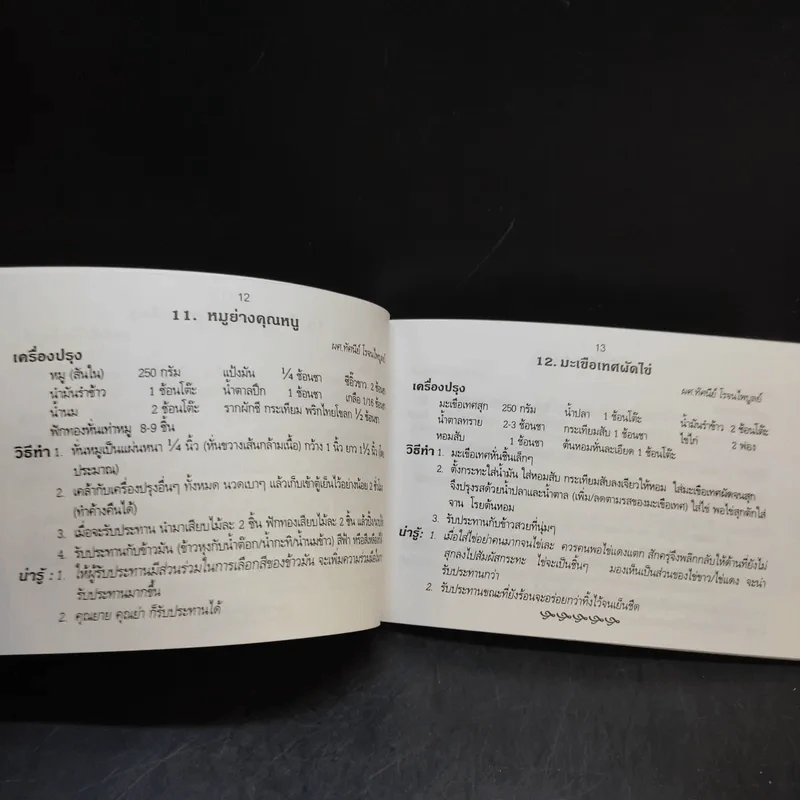 12
11. หมูย่างคุณหนู
ผศ.ทัศนีย์ โรจนไพบูลย์
เครื่องปรุง
หมู (สันใน) 250 กรัม แป้งมัน ¼ ช้อนชา ซีอิ๊วขาว 2 ช้อนชา
น้ำมันรำข้าว 1 ช้อนโต๊ะ น้ำตาลปึก 1 ช้อนชา เกลือ 1/16 ช้อนชา
น้ำนม 2 ช้อนโต๊ะ รากผักชี กระเทียม พริกไทยโขลก ½ ช้อนชา
ฟักทองหั่นเท่าหมู 8-9 ชิ้น
วิธีทำ 1. หั่นหมูเป็นแผ่นหนา ¼ นิ้ว (หั่นขวางเส้นกล้ามเนื้อ) กว้าง 1 นิ้ว ยาว 1½ นิ้ว (โดย
ประมาณ)
2. เคล้ากับเครื่องปรุงอื่นๆ ทั้งหมด นวดเบาๆ แล้วเก็บเข้าตู้เย็นไว้อย่างน้อย 2 ชั่วโมง
(ทำค้างคืนได้)
3. เมื่อจะรับประทาน นำมาเสียบไม้ละ 2 ชิ้น ฟักทองเสียบไม้ละ 2 ชิ้น
4. รับประทานกับข้าวมัน (ข้าวหุงกับน้ำต๊อก/น้ำกะทิ/น้ำนมข้าว) สีฟ้า
น่ารู้ : 1. ให้ผู้รับประทานมีส่วนร่วมในการเลือกสีของข้าวมัน จะเพิ่มความร่วมมือในการ
รับประทานมากขึ้น
2. คุณยาย คุณย่า ก็รับประทานได้
13
12. มะเขือเทศผัดไข่
ผศ.ทัศนีย์ โรจนไพบูลย์
เครื่องปรุง
มะเขือเทศสุก 250 กรัม น้ำปลา 1 ช้อนโต๊ะ น้ำมันรำข้าว 2 ช้อนโต๊ะ
น้ำตาลทราย 2-3 ช้อนชา กระเทียมสับ 1 ช้อนชา ไข่ไก่ 2 ฟอง
หอมสับ 1 ช้อนชา ต้นหอมหั่นละเอียด 1 ช้อนโต๊ะ
วิธีทำ 1. มะเขือเทศหั่นชิ้นเล็กๆ
2. ตั้งกระทะใส่น้ำมัน ใส่หอมสับ กระเทียมสับลงเจียวให้หอม ใส่มะเขือเทศผัดจนสุก
จึงปรุงรสด้วยน้ำปลาและน้ำตาล (เพิ่ม/ลดตามรสของมะเขือเทศ) ใส่ไข่ พอไข่สุกตักใส่
จาน โรยต้นหอม
3. รับประทานกับข้าวสวยที่นุ่มๆ
น่ารู้: 1. เมื่อใส่ไข่อย่าคนมากจนไข่เละ ควรคนพอไข่แดงแตก สักครู่จึงพลิกกลับให้ด้านที่ยังไม่
สุกลงไปสัมผัสกระทะ ไข่จะเป็นชิ้นๆ มองเห็นเป็นส่วนของไข่ขาว/ไข่แดง จะน่า
รับประทานกว่า
2. รับประทานขณะที่ยังร้อนจะอร่อยกว่าทิ้งไว้จนเย็นชืด